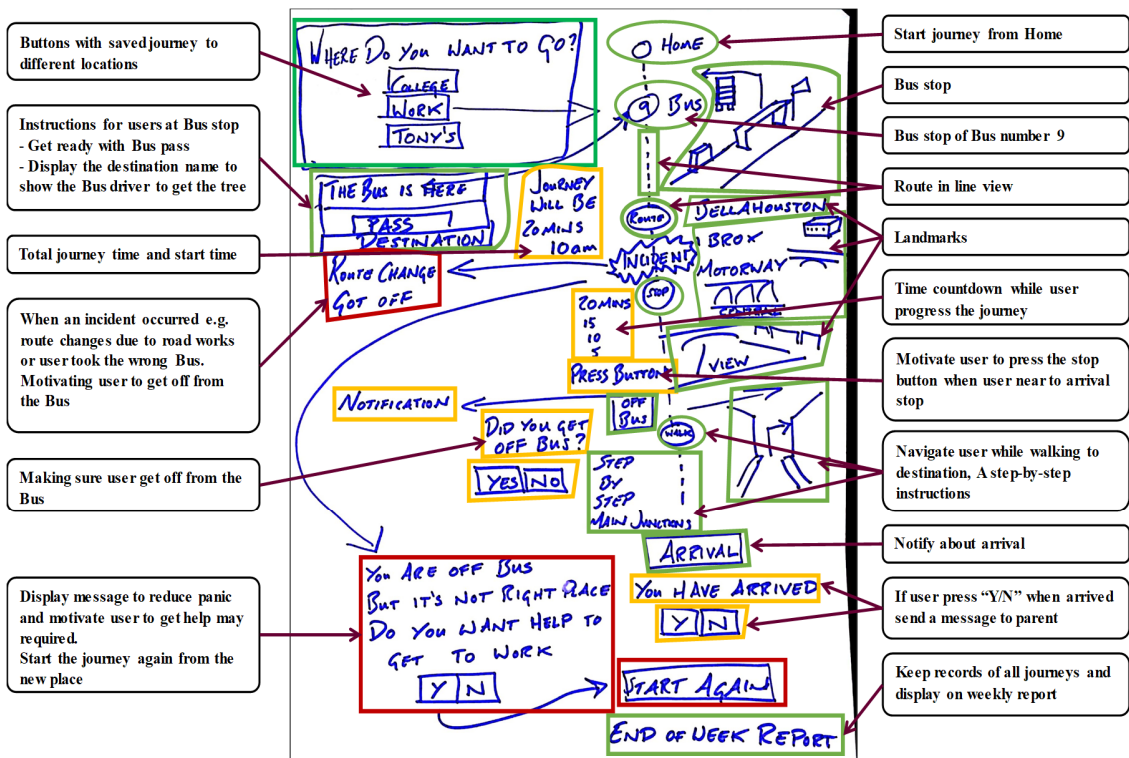 Buttons with saved journey to
different locations
Instructions for users at Bus stop
- Get ready with Bus pass
- Display the destination name to
show the Bus driver to get the tree
Total journey time and start time
When an incident occurred e.g.
route changes due to road works
or user took the wrong Bus.
Motivating user to get off from
the Bus
Making sure user get off from the
Bus
Display message to reduce panic
and motivate user to get help may
required.
Start the journey again from the
new place
WHERE DO YOU WANT TO GO?
COLLEGE
WORK
TONY'S
THE BUS IS HERE
PASS
DESTINATION
JOURNEY
WILL BE
20 MINS
10am
ROUTE CHANGE
GOT OFF
NOTIFICATION
DID YOU GET
OFF BUS?
YES NO
YOU ARE OFF BUS
BUT IT'S NOT RIGHT PLACE
DO YOU WANT HELP TO
GET TO WORK
Y N
START AGAIN
HOME
9 BUS
ROUTE
INCIDENT
STOP
20 MINS
15
10
5
PRESS BUTTON
OFF
BUS
WALK
STEP
BY
STEP
MAIN JUNCTIONS
ARRIVAL
YOU HAVE ARRIVED
Y N
END OF WEEK REPORT
BELLAHOUSTON
IBROX
MOTORWAY
CENTRAL
VIEW
Start journey from Home
Bus stop
Bus stop of Bus number 9
Route in line view
Landmarks
Time countdown while user
progress the journey
Motivate user to press the stop
button when user near to arrival
stop
Navigate user while walking to
destination, A step-by-step
instructions
Notify about arrival
If user press “Y/N” when arrived
send a message to parent
Keep records of all journeys and
display on weekly report